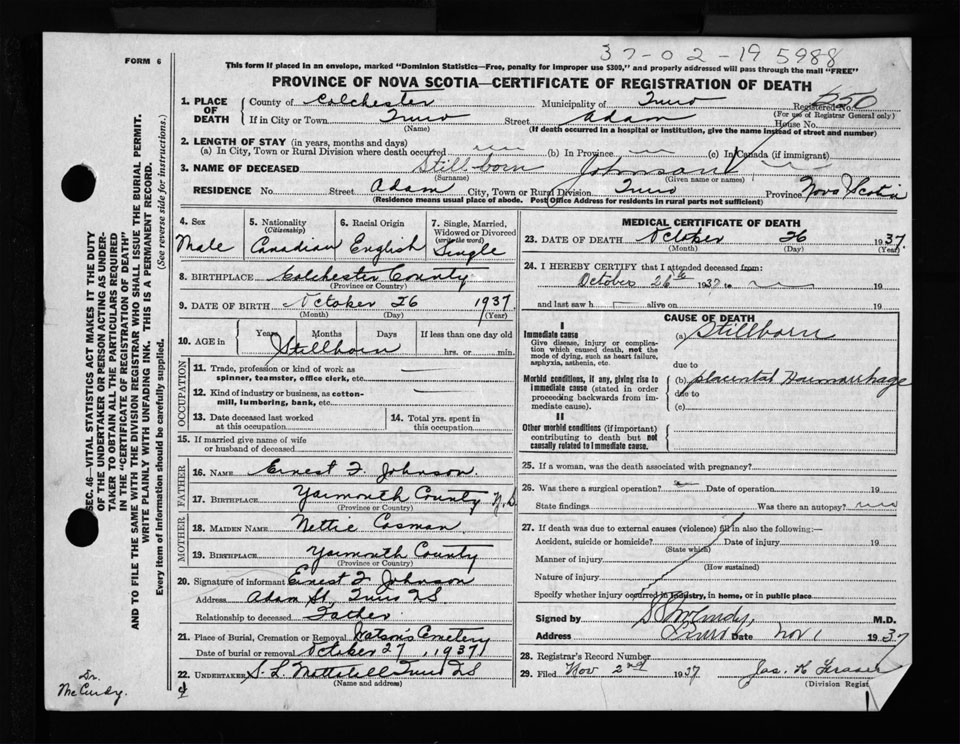 37-02-195988
FORM 6
This form if placed in an envelope, marked "Dominion Statistics—Free, penalty for improper use $300," and properly addressed will pass through the mail "FREE"
PROVINCE OF NOVA SCOTIA—CERTIFICATE OF REGISTRATION OF DEATH
1. PLACE OF DEATH
County of Colchester Municipality of Truro Registered No. 550
(For use of Registrar General only)
If in City or Town Truro Street Adam House No.
(Name) (If death occurred in a hospital or institution, give the name instead of street and number)
2. LENGTH OF STAY (in years, months and days)
(a) In City, Town or Rural Division where death occurred (b) In Province (c) In Canada (if immigrant)
3. NAME OF DECEASED Stillborn Johnson
(Surname) (Given name or names)
RESIDENCE No. Street Adam City, Town or Rural Division Truro Province Nova Scotia
(Residence means usual place of abode. Post Office Address for residents in rural parts not sufficient)
4. Sex Male
5. Nationality (Citizenship) Canadian
6. Racial Origin English
7. Single, Married, Widowed or Divorced (write the word) Single
8. BIRTHPLACE Colchester County
(Province or Country)
9. DATE OF BIRTH October 26 1937
(Month) (Day) (Year)
10. AGE in Years Months Days If less than one day old
Stillborn hrs. or min.
OCCUPATION
11. Trade, profession or kind of work as spinner, teamster, office clerk, etc. —
12. Kind of industry or business, as cotton-mill, lumbering, bank, etc. —
13. Date deceased last worked at this occupation
14. Total yrs. spent in this occupation
15. If married give name of wife or husband of deceased
FATHER
16. NAME Ernest F. Johnson.
17. BIRTHPLACE Yarmouth County N.S.
(Province or Country)
MOTHER
18. MAIDEN NAME Nettie Cosman
19. BIRTHPLACE Yarmouth County
(Province or Country)
20. Signature of informant Ernest F Johnson
Address Adam St. Truro NS
Relationship to deceased Father
21. Place of Burial, Cremation or Removal Watson's Cemetery
Date of burial or removal October 27, 1937
22. UNDERTAKER S. L. Truro NS
(Name and address)
MEDICAL CERTIFICATE OF DEATH
23. DATE OF DEATH October 26 1937.
(Month) (Day) (Year)
24. I HEREBY CERTIFY that I attended deceased from:
October 26th 1937 to 19
and last saw h alive on 19
CAUSE OF DEATH
I
Immediate cause
Give disease, injury or complication which caused death, not the mode of dying, such as heart failure, asphyxia, asthenia, etc.
(a) Stillborn
due to
Morbid conditions, if any, giving rise to immediate cause (stated in order proceeding backwards from immediate cause).
(b) placental Haemorrhage
due to
(c)
II
Other morbid conditions (if important) contributing to death but not causally related to immediate cause.
25. If a woman, was the death associated with pregnancy?
26. Was there a surgical operation? Date of operation 19
State findings Was there an autopsy? no
27. If death was due to external causes (violence) fill in also the following:—
Accident, suicide or homicide? Date of injury 19
(State which)
Manner of injury
(How sustained)
Nature of injury
Specify whether injury occurred in industry, in home, or in public place
Signed by McCurdy, M.D.
Address Truro Date Nov 1 1937
28. Registrar's Record Number
29. Filed Nov 2nd 1937 Jas. K Fraser
(Division Regist
SEC. 46—VITAL STATISTICS ACT MAKES IT THE DUTY
OF THE UNDERTAKER OR PERSON ACTING AS UNDER-
TAKER TO OBTAIN ALL THE PARTICULARS REQUIRED
IN THE "CERTIFICATE OF REGISTRATION OF DEATH"
AND TO FILE THE SAME WITH THE DIVISION REGISTRAR WHO SHALL ISSUE THE BURIAL PERMIT.
WRITE PLAINLY WITH UNFADING INK. THIS IS A PERMANENT RECORD.
Every item of information should be carefully supplied. (See reverse side for instructions.)
Dr.
McCurdy.